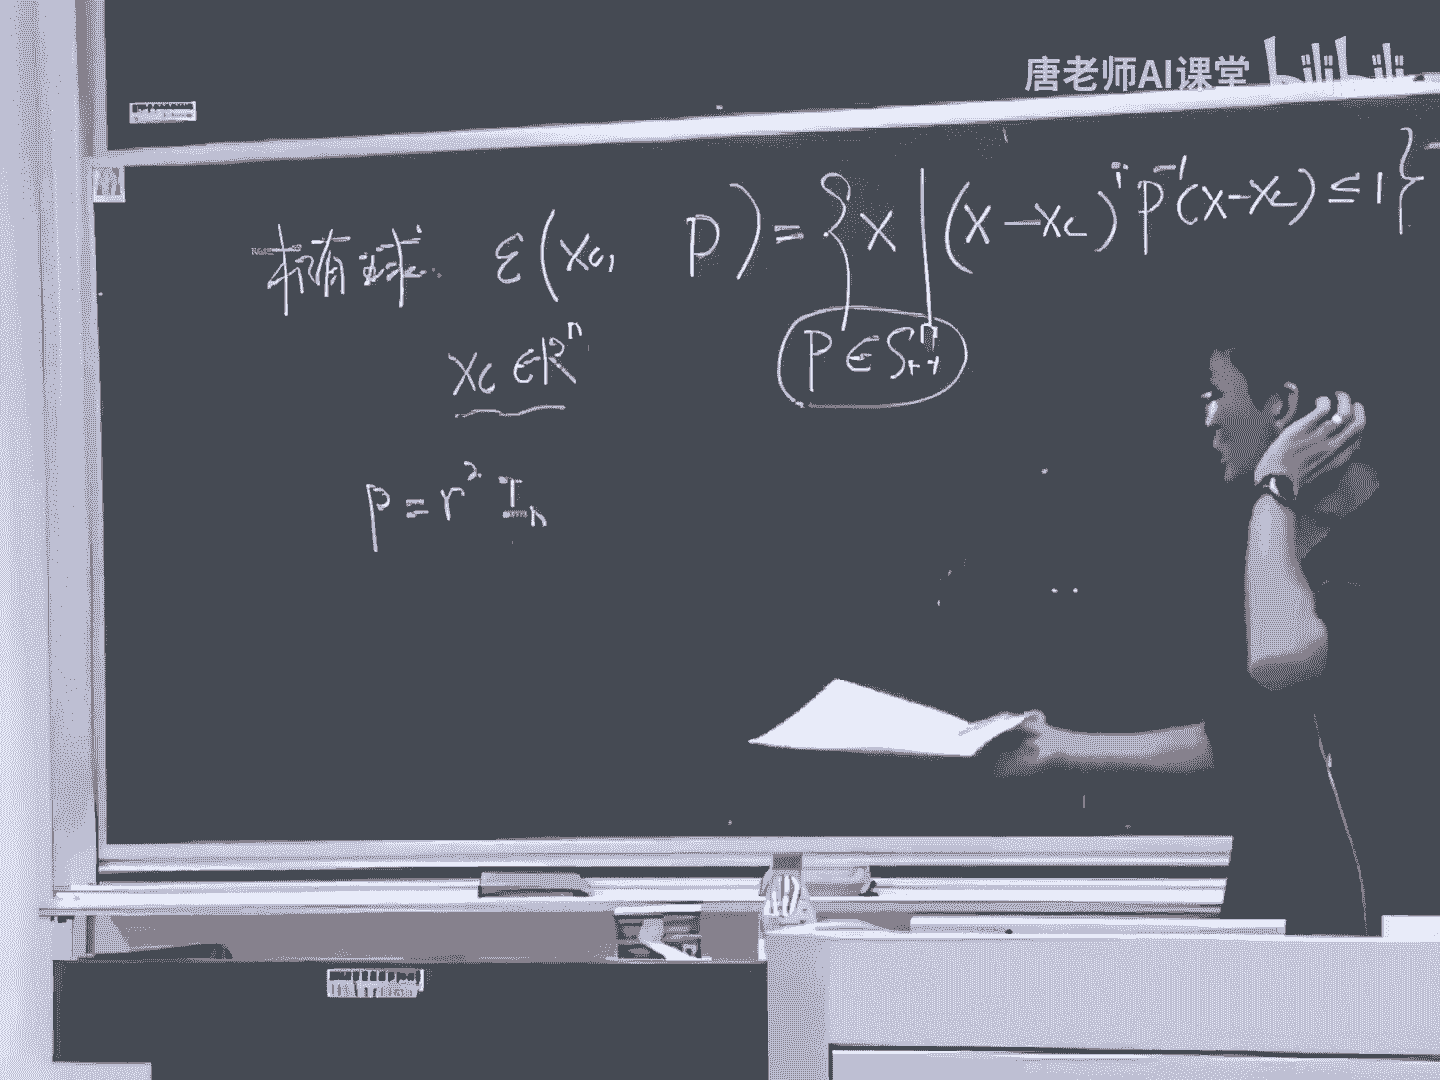 唐老师AI课堂 bilibili
椭球 ε(xc, P) = {x | (x-xc)ᵀ P⁻¹(x-xc) ≤ 1}
xc ∈ Rⁿ
P ∈ Sⁿ₊₊
P = r² Iₙ